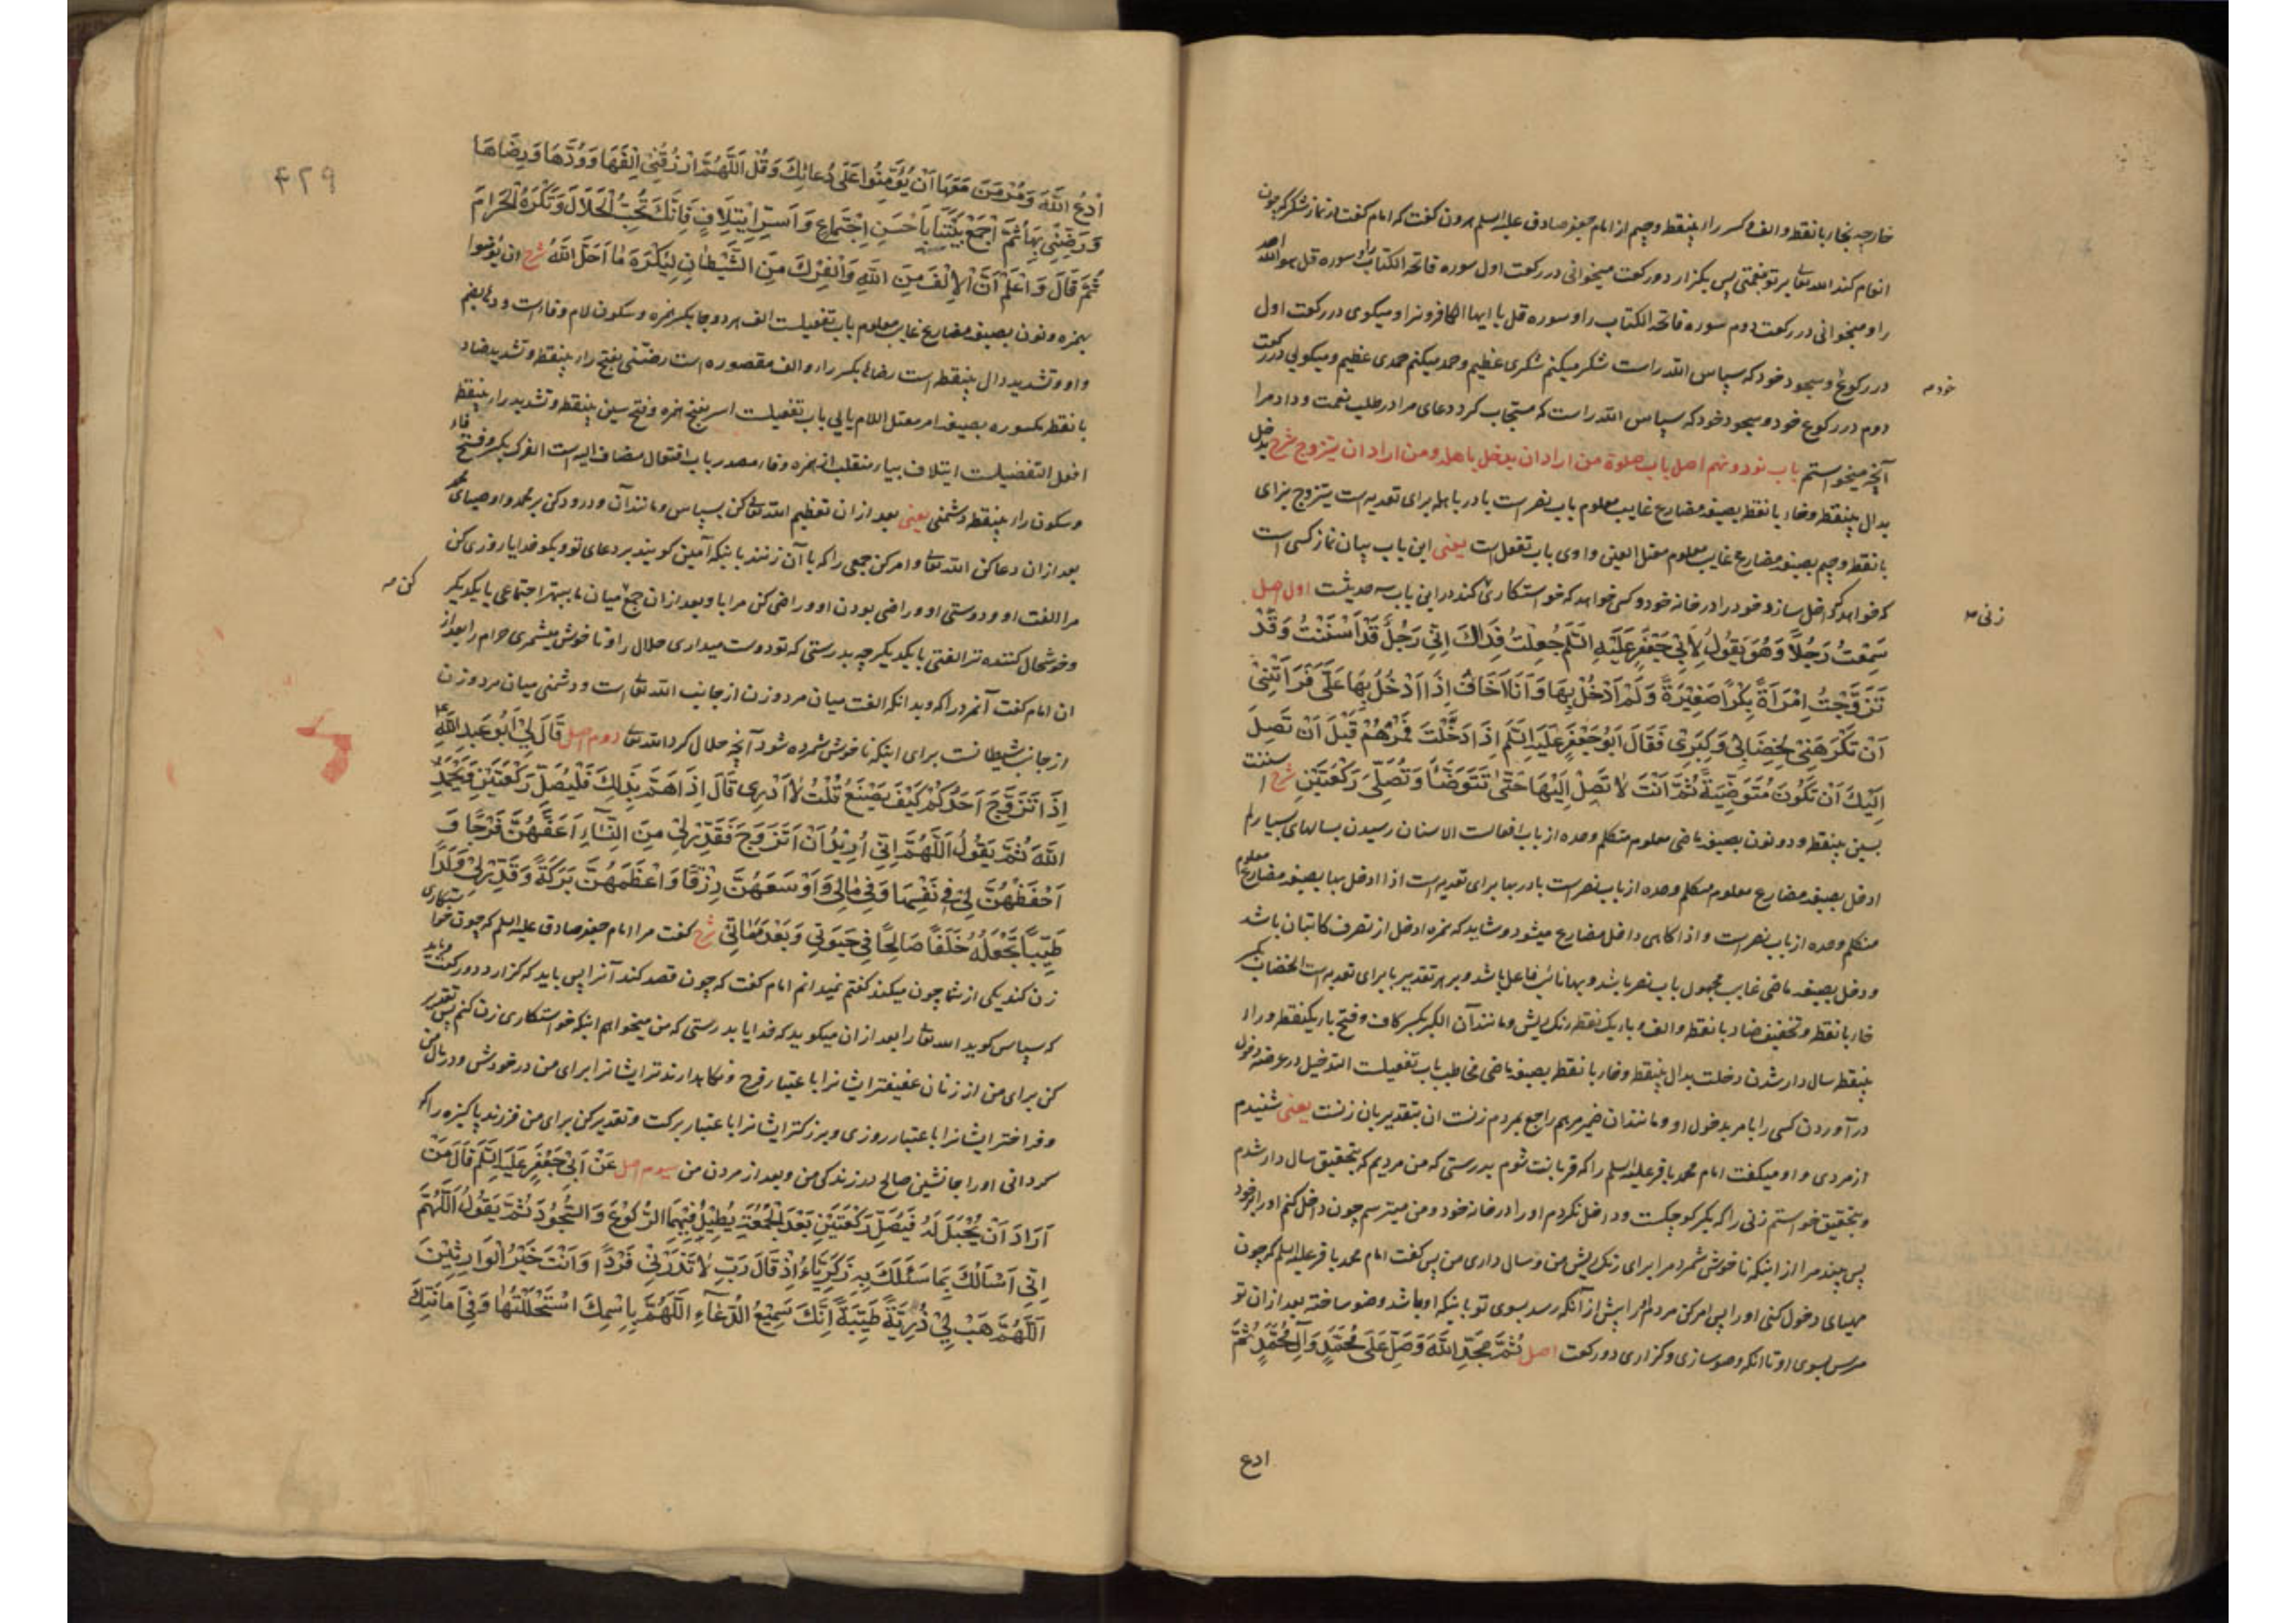 خارجه بخاء با نقطه و الف و کسر راء بینقطه و جیم از امام جعفر صادق علیه السلم هرون گفت که امام گفت از نماز شکر که چون
انعام کند الله تعا بر تو بنعمتی پس بگزار دو رکعت میخوانی در رکعت اول سوره فاتحة الکتاب و سوره قل هو الله احد
را و میخوانی در رکعت دوم سوره فاتحة الکتاب را و سوره قل یا ایها الکافرون را و میگوی در رکعت اول
در رکوع و سجود خود که سپاس الله راست شکر میکنم شکری عظیم و حمد میکنم حمدی عظیم و میگوئی در رکعت
خود
دوم در رکوع خود و سجود خود که سپاس الله راست که مستجاب کرد دعای مرا در طلب نعمت و داد مرا
آنچه میخواستم باب نود و نهم اصل باب صلوة من اراد ان یدخل باهله و من اراد ان یتزوج شرح یدخل
بدال بینقطه و خاء با نقطه بصیغه مضارع غایب معلوم باب نصر است با در باهله برای تعدیه است یتزوج بزای
با نقطه و جیم بصیغه مضارع غایب معلوم معتل العین واوی باب تفعل است یعنی این باب بیان نماز کسی است
که خواهد که داخل سازد خود را در خانه خود و کسی خواهد که خواستکاری کند در این باب سه حدیثست اول اصل
زنی
سَمِعْتُ رَجُلًا وَهُوَ يَقُولُ لِأَبِي جَعْفَرٍ عَلَيْهِ السَّلَم جُعِلْتُ فِدَاكَ إِنِّي رَجُلٌ قَدْ أَسْنَنْتُ وَقَدْ
تَزَوَّجْتُ امْرَأَةً بِكْرًا صَغِيرَةً وَلَمْ أَدْخُلْ بِهَا وَأَنَا أَخَافُ إِذَا أَدْخُلُ بِهَا عَلَيَّ فَرَأَتْنِي
أَنْ تَكْرَهَنِي لِخِضَابِي وَكِبَرِي فَقَالَ أَبُو جَعْفَرٍ عَلَيْهِ السَّلَم إِذَا دَخَلْتَ فَمُرْهُمْ قَبْلَ أَنْ تَصِلَ
إِلَيْكَ أَنْ تَكُونَ مُتَوَضِّئَةً ثُمَّ أَنْتَ لَا تَصِلْ إِلَيْهَا حَتَّى تَتَوَضَّأَ وَتُصَلِّيَ رَكْعَتَيْنِ شرح اسننت
بسین بینقطه و دو نون بصیغه ماضی معلوم متکلم وحده از باب افعالست الاسنان رسیدن بسالهای بسیار
ادخل بصیغه مضارع معلوم متکلم وحده از باب نصر است با در بها برای تعدیه است اذا ادخل بها بصیغه مضارع معلوم
متکلم وحده از باب نصر است و اذا گاهی داخل مضارع میشود و شاید که همزه ادخل از تصرف کاتبان باشد
و دخل بصیغه ماضی غایب مجهول باب نصر باشد و بها نائب فاعل باشد و بر هر تقدیر با برای تعدیه است الخضاب بکسر
خاء با نقطه و تخفیف ضاد با نقطه و الف و باء یک نقطه رنگ ریش و مانند آن الکبر بکسر کاف و فتح باء یکنقطه و راء
بینقطه سال دار شدن دخلت بدال بینقطه و خاء با نقطه بصیغه ماضی مخاطب باب تفعیلست التدخیل در عرضه دخول
در آوردن کسی را بامر بدخول او و مانند آن ضمیر مرهم راجع بمردم زنست ان بتقدیر بان زنست یعنی شنیدم
از مردی و او میگفت امام محمد باقر علیه السلم را که قربانت شوم بدرستی که من مردیم که بتحقیق سال دار شدم
و بتحقیق خواستم زنی را که بکر کوچکست و داخل نکردم او را در خانه خود و من میترسم چون داخل کنم او را بر خود
پس بیند مرا از اینکه ناخوش شمرد مرا برای رنگ ریش من و سال داری من پس گفت امام محمد باقر علیه السلم که چون
مهیای دخول کنی او را پس امر کن مردم را پیش از آنکه رسد بسوی تو باینکه او باشد وضو ساخته بعد از ان تو
مرس بسوی او تا آنکه وضو سازی و گزاری دو رکعت اصل ثُمَّ مَجِّدِ اللَّهَ وَصَلِّ عَلَى مُحَمَّدٍ وَآلِ مُحَمَّدٍ ثُمَّ
ادع
۴۲۹
ادْعُ اللَّهَ وَمُرْ مَنْ مَعَهَا أَنْ يُؤَمِّنُوا عَلَى دُعَائِكَ وَقُلِ اللَّهُمَّ ارْزُقْنِي إِلْفَهَا وَوُدَّهَا وَرِضَاهَا
وَرَضِّنِي بِهَا ثُمَّ اجْمَعْ بَيْنَنَا بِأَحْسَنِ اجْتِمَاعٍ وَأَسَرِّ ائْتِلَافٍ فَإِنَّكَ تُحِبُّ الْحَلَالَ وَتَكْرَهُ الْحَرَامَ
ثُمَّ قَالَ وَاعْلَمْ أَنَّ الْإِلْفَ مِنَ اللَّهِ وَالْفِرْكَ مِنَ الشَّيْطَانِ لِيُكْرَهَ مَا أَحَلَّ اللَّهُ شرح ان یؤمنوا
بهمزه و نون بصیغه مضارع غایب معلوم باب تفعیلست الف هر دو جا بکسر همزه و سکون لام و فاء است ودها بضم
واو و تشدید دال بینقطه است رضاها بکسر راء و الف مقصوره است رضنی بفتح راء بینقطه و تشدید ضاد
با نقطه مکسوره بصیغه امر معتل اللام یایی باب تفعیلست اسر بفتح همزه و فتح سین بینقطه و تشدید راء بینقطه
افعل التفضیلست ایتلاف بیاء منقلب از همزه و فاء مصدر باب افتعال مضاف الیه است الفرک بکسر و فتح فاء
و سکون راء بینقطه دشمنی یعنی بعد از ان تعظیم الله تعا کن بسپاس و مانند آن و درود کن بر محمد و اوصیای محمد
بعد از ان دعا کن الله تعا و امر کن جمعی را که با آن زنند باینکه آمین گویند بر دعای تو و بگو خدایا روزی کن
مرا الفت او و دوستی او و راضی بودن او و راضی کن مرا باو بعد از ان جمع میان ما ببهتر اجتماعی با یکدیگر
کن
و خوشحال کننده تر الفتی با یکدیگر چه بدرستی که تو دوست میداری حلال را و ناخوش میشمری حرام را بعد از
ان امام گفت آنمرد را که و بدانکه الفت میان مرد و زن از جانب الله تعا است و دشمنی میان مرد و زن
از جانب شیطانست برای اینکه ناخوش شمرده شود آنچه حلال کرد الله تعا دوم اصل قَالَ لِي أَبُو عَبْدِ اللَّهِ ع
إِذَا تَزَوَّجَ أَحَدُكُمْ كَيْفَ يَصْنَعُ قُلْتُ لَا أَدْرِي قَالَ إِذَا هَمَّ بِذَلِكَ فَلْيُصَلِّ رَكْعَتَيْنِ وَيَحْمَدُ
اللَّهَ ثُمَّ يَقُولُ اللَّهُمَّ إِنِّي أُرِيدُ أَنْ أَتَزَوَّجَ فَقَدِّرْ لِي مِنَ النِّسَاءِ أَعَفَّهُنَّ فَرْجًا وَ
أَحْفَظَهُنَّ لِي فِي نَفْسِهَا وَفِي مَالِي وَأَوْسَعَهُنَّ رِزْقًا وَأَعْظَمَهُنَّ بَرَكَةً وَقَدِّرْ لِي وَلَدًا
طَيِّبًا تَجْعَلُهُ خَلَفًا صَالِحًا فِي حَيَوتِي وَبَعْدَ مَمَاتِي شرح گفت مرا امام جعفر صادق علیه السلم که چون خواستکاری
زن کند یکی از شما چون میکند گفتم نمیدانم امام گفت که چون قصد کند آنرا پس باید که گزارد دو رکعت و باید
که سپاس گوید الله تعا را بعد از ان میگوید که خدایا بدرستی که من میخواهم اینکه خواستکاری زن کنم پس تقدیر
کن برای من از زنان عفیفتر ایشانرا باعتبار فرج و نگاهدارنده تر ایشانرا برای من در خودش و در مال من
و فراختر ایشانرا باعتبار روزی و بزرگتر ایشانرا باعتبار برکت و تقدیر کن برای من فرزند پاکیزه را که
گردانی او را جانشین صالح در زندگی من و بعد از مردن من سیوم اصل عَنْ أَبِي جَعْفَرٍ عَلَيْهِ السَّلَم قَالَ مَنْ
أَرَادَ أَنْ يُحْبَلَ لَهُ فَيُصَلِّ رَكْعَتَيْنِ بَعْدَ الْجُمُعَةِ يُطِيلُ فِيهِمَا الرُّكُوعَ وَالسُّجُودَ ثُمَّ يَقُولُ اللَّهُمَّ
إِنِّي أَسْأَلُكَ بِمَا سَئَلَكَ بِهِ زَكَرِيَّاءُ إِذْ قَالَ رَبِّ لَا تَذَرْنِي فَرْدًا وَأَنْتَ خَيْرُ الْوَارِثِينَ
اللَّهُمَّ هَبْ لِي ذُرِّيَّةً طَيِّبَةً إِنَّكَ سَمِيعُ الدُّعَاءِ اللَّهُمَّ بِاسْمِكَ اسْتَحْلَلْتُهَا وَفِي أَمَانَتِكَ